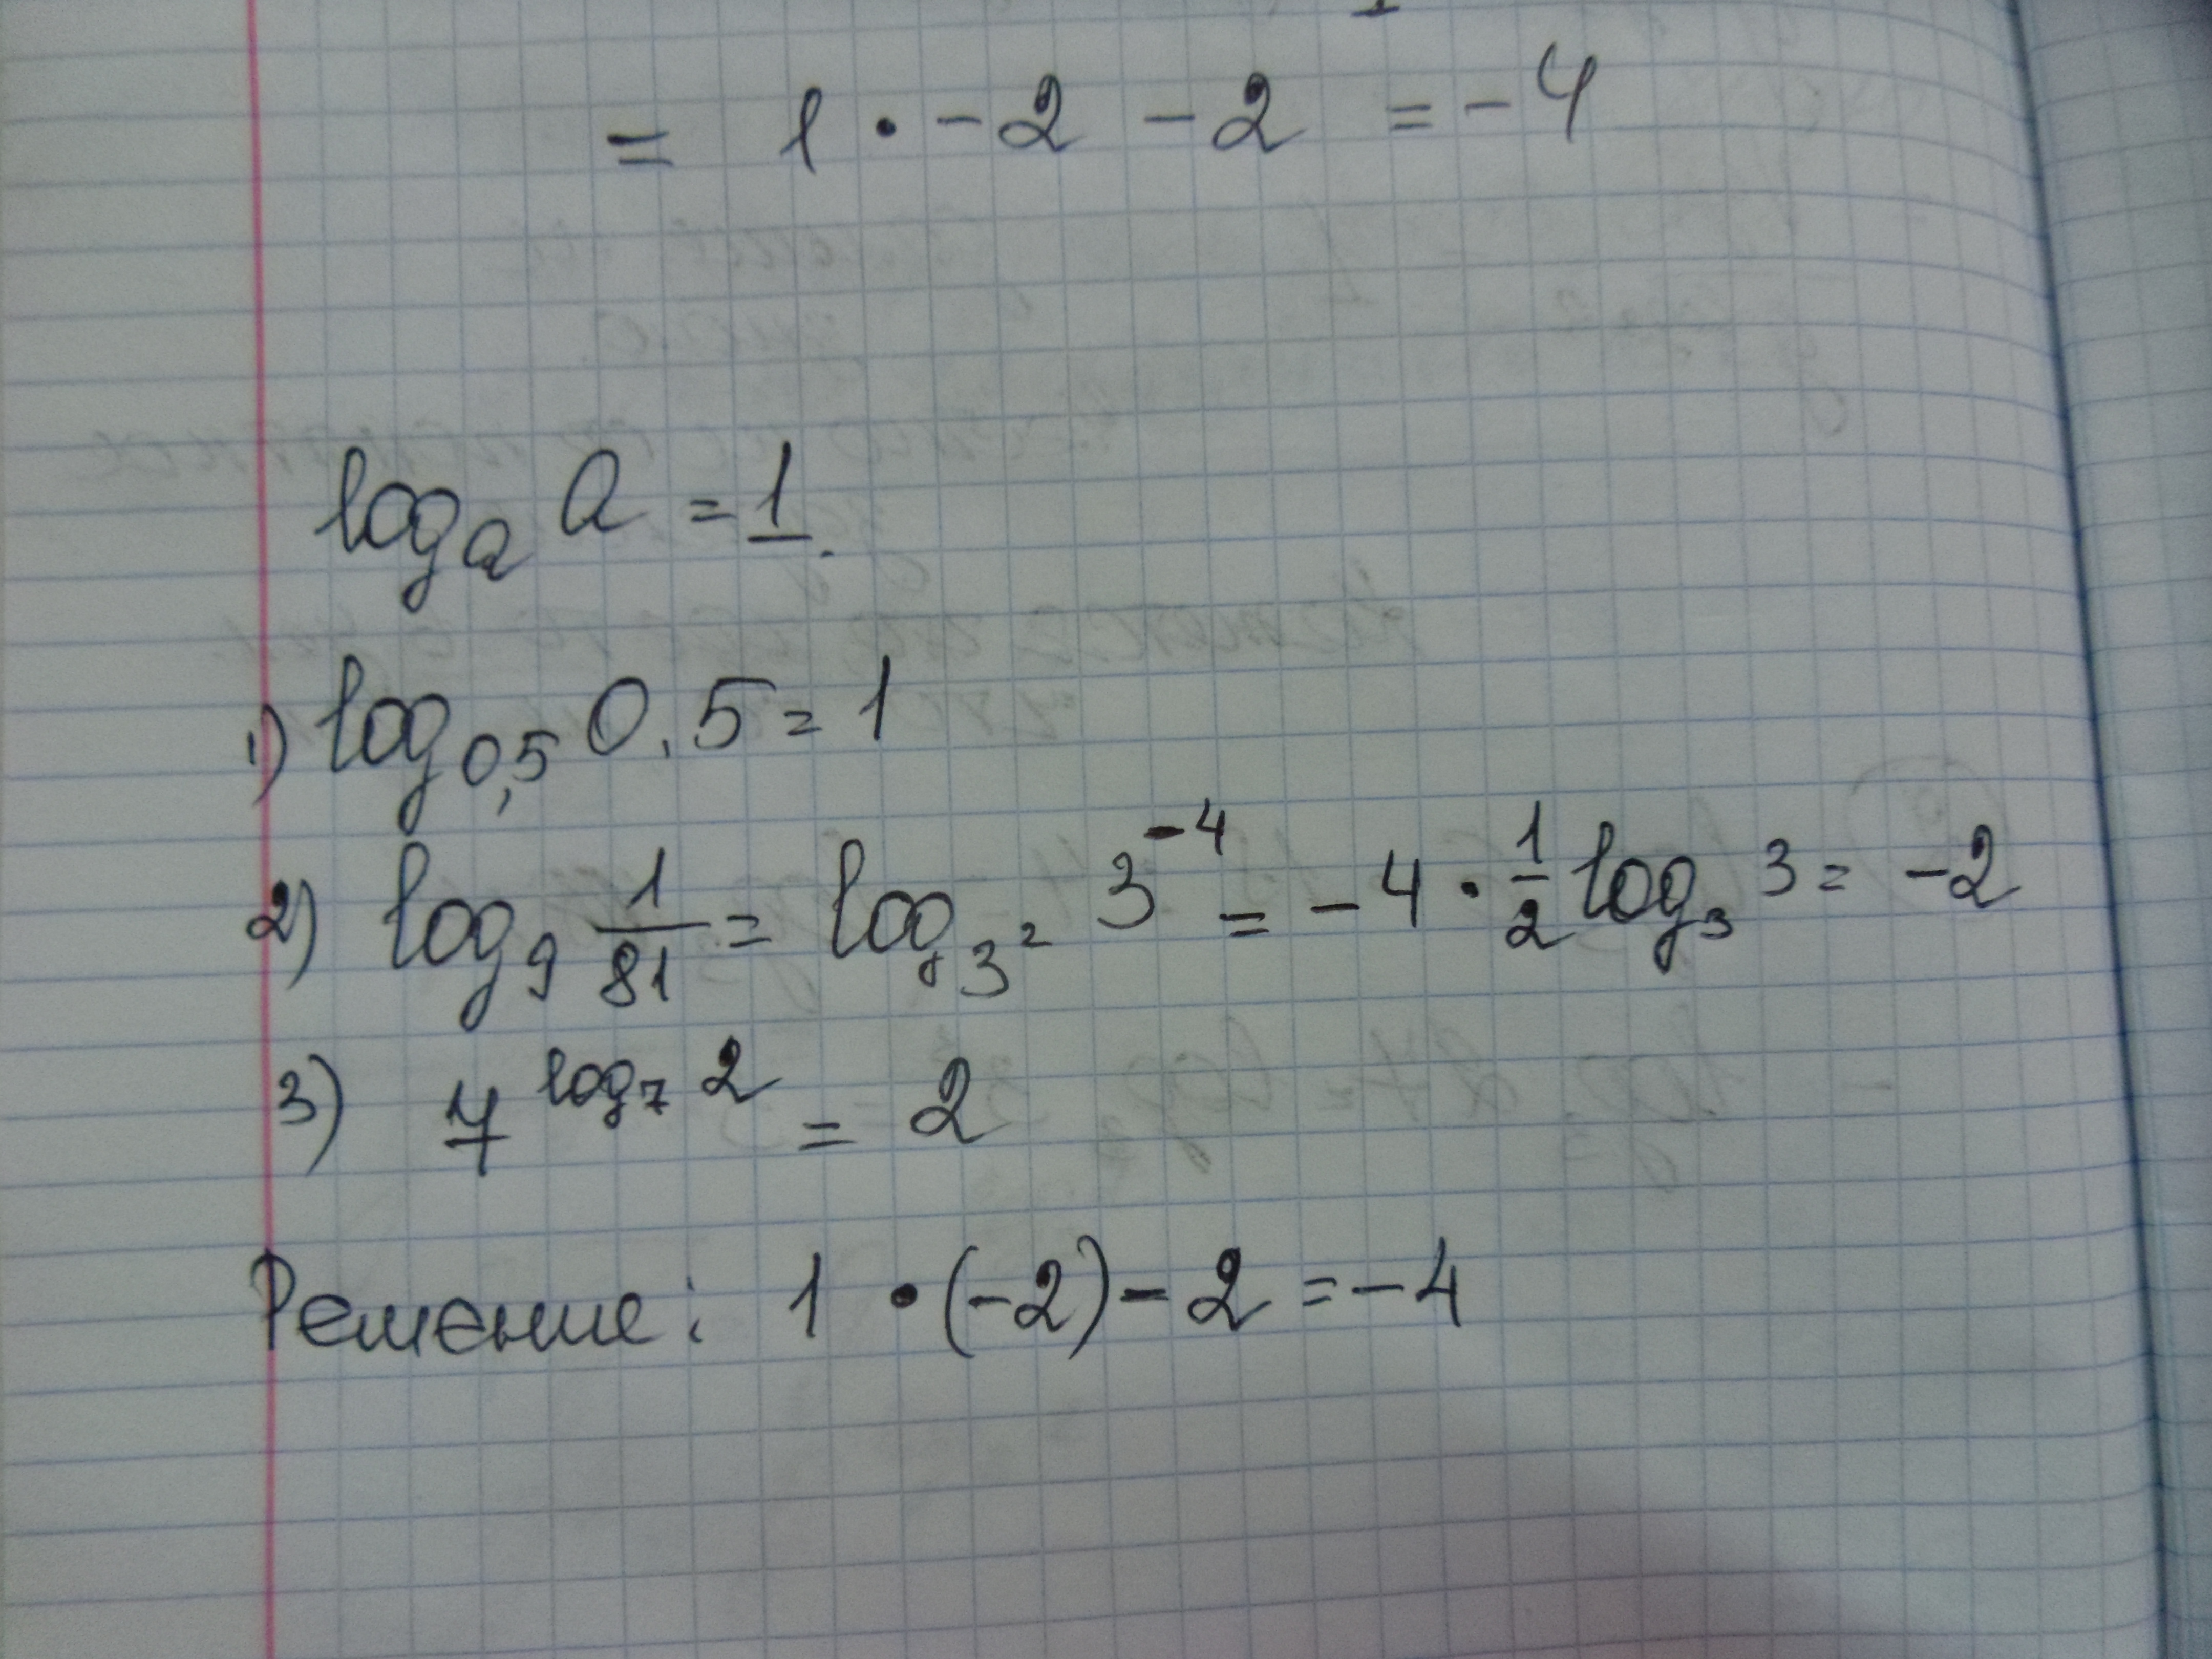 = 1 · -2 - 2 = -4
logₐ a = 1.
1) log₀,₅ 0,5 = 1
2) log₉ 1/81 = log₃² 3⁻⁴ = -4 · 1/2 log₃ 3 = -2
3) 7^(log₇ 2) = 2
Решение: 1 · (-2) - 2 = -4